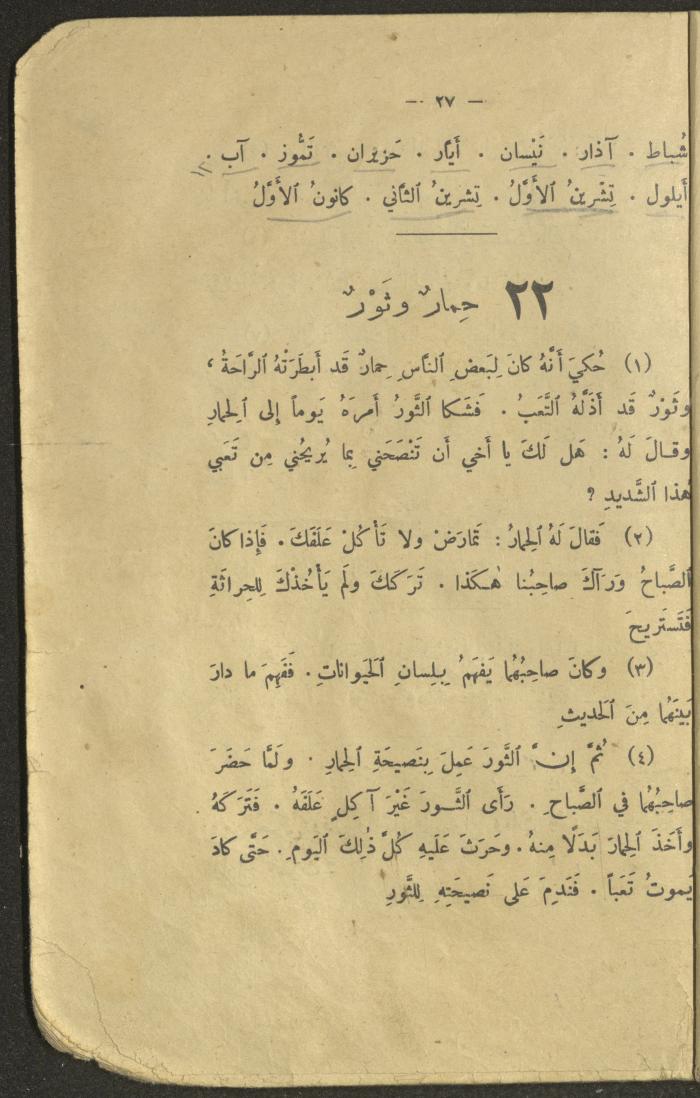 — ٢٧ —
شُباط . آذار . نَيْسان . أَيَّار . حَزيران . تَمُّوز . آب .
أَيلول . تِشْرينُ ٱلأَوَّلُ . تِشرينُ ٱلثَّاني . كانونُ ٱلأَوَّلُ
٢٢ حِمارٌ وثَوْرٌ
(١) حُكيَ أَنَّهُ كانَ لِبَعضِ ٱلنَّاسِ حِمارٌ قَد أَبطَرَتْهُ ٱلرَّاحَةُ ،
وثَوْرٌ قَد أَذَلَّهُ ٱلتَّعَبُ . فَشَكا ٱلثَّورُ أَمرَهُ يَوماً إِلى ٱلحِمارِ
وقـالَ لَهُ : هَل لَكَ يا أَخي أَن تَنْصَحَني بِما يُريحُني مِن تَعَبي
هٰذا ٱلشَّديدِ ؟
(٢) فَقالَ لَهُ ٱلحِمارُ : تَمارَضْ ولا تَأْكُلْ عَلَفَكَ . فَإِذا كانَ
ٱلصَّباحُ وَرَآكَ صاحِبُنا هٰـكَذا . تَرَكَكَ ولَم يَأْخُذْكَ لِلحِراثَةِ
فَتَستَريحَ
(٣) وكانَ صاحِبُهُما يَفهَمُ بِلِسانِ ٱلحَيواناتِ . فَفَهِمَ ما دارَ
بَينَهُما مِنَ ٱلحَديثِ
(٤) ثُمَّ إِنَّ ٱلثَّورَ عَمِلَ بِنَصيحَةِ ٱلحِمارِ . ولَمَّا حَضَرَ
صاحِبُهُما في ٱلصَّباحِ . رَأَى ٱلثَّــورَ غَيْرَ آكِلٍ عَلَفَهُ . فَتَرَكَهُ
وأَخَذَ ٱلحِمارَ بَدَلًا مِنهُ . وحَرَثَ عَلَيهِ كُلَّ ذٰلِكَ ٱليَومِ . حَتَّى كادَ
يَموتُ تَعَباً . فَنَدِمَ عَلى نَصيحَتِهِ لِلثَّورِ